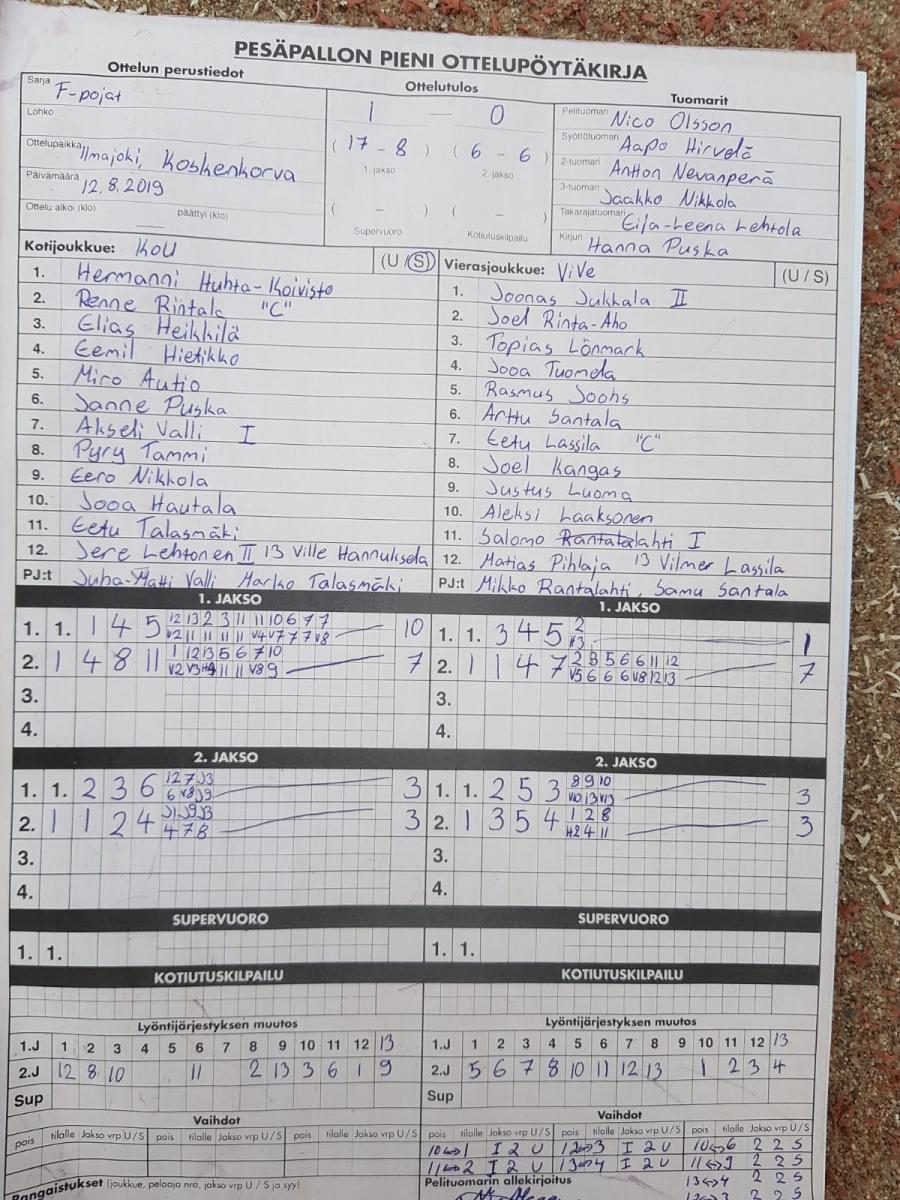 PESÄPALLON PIENI OTTELUPÖYTÄKIRJA
Ottelun perustiedot
Ottelutulos
Tuomarit
Sarja F-pojat
Lohko
Ottelupaikka Ilmajoki, Koskenkorva
Päivämäärä 12.8.2019
Ottelu alkoi (klo) päättyi (klo)
1 — 0
( 17 - 8 ) ( 6 - 6 )
1. jakso 2. jakso
( - ) ( - )
Supervuoro Kotiutuskilpailu
Pelituomari Nico Olsson
Syöttötuomari Aapo Hirvelä
2-tuomari Antton Nevanperä
3-tuomari Jaakko Nikkola
Takarajatuomari Eija-Leena Lehtola
Kirjuri Hanna Puska
Kotijoukkue: KoU (U / S)
1. Hermanni Huhta-Koivisto
2. Renne Rintala "C"
3. Elias Heikkilä
4. Eemil Hietikko
5. Miro Autio
6. Janne Puska
7. Akseli Valli I
8. Pyry Tammi
9. Eero Nikkola
10. Jooa Hautala
11. Eetu Talasmäki
12. Jere Lehtonen II 13 Ville Hannuksela
PJ:t Juha-Matti Valli Marko Talasmäki
Vierasjoukkue: ViVe (U / S)
1. Joonas Jukkala II
2. Joel Rinta-Aho
3. Topias Lönmark
4. Jooa Tuomela
5. Rasmus Joohs
6. Arttu Santala
7. Eetu Lassila "C"
8. Joel Kangas
9. Justus Luoma
10. Aleksi Laaksonen
11. Salomo Rantatalahti I
12. Matias Pihlaja 13 Vilmer Lassila
PJ:t Mikko Rantalahti, Samu Santala
1. JAKSO
1. 1. 1 4 5 12 13 2 3 11 11 10 6 7 7 10
V2 11 11 11 11 V4 V7 7 7 V8
2. 1 4 8 11 1 12 13 5 6 7 10 7
3.
4.
1. JAKSO
1. 1. 3 4 5 2 1
V3
2. 1 1 4 7 2 3 5 6 6 11 12 7
V5 6 6 6 V8 12 13
3.
4.
2. JAKSO
1. 1. 2 3 6 12 7 J3 3
6 V8 J9
2. 1 1 2 4 J1 J9 J3 3
4 7 8
3.
4.
2. JAKSO
1. 1. 2 5 3 8 9 10 3
V10 13 V13
2. 1 3 5 4 1 2 8 3
H2 4 11
3.
4.
SUPERVUORO
1. 1.
SUPERVUORO
1. 1.
KOTIUTUSKILPAILU
KOTIUTUSKILPAILU
Lyöntijärjestyksen muutos
1.J 1 2 3 4 5 6 7 8 9 10 11 12 13
2.J 12 8 10 11 2 13 3 6 1 9
Sup
Lyöntijärjestyksen muutos
1.J 1 2 3 4 5 6 7 8 9 10 11 12 13
2.J 5 6 7 8 10 11 12 13 1 2 3 4
Sup
Vaihdot
pois tilalle Jakso vrp U / S pois tilalle Jakso vrp U / S pois tilalle Jakso vrp U / S
Vaihdot
pois tilalle Jakso vrp U / S pois tilalle Jakso vrp U / S pois tilalle Jakso vrp U / S
10↔1 I 2 U 12↔3 I 2 U 10↔6 2 2 S
11↔2 I 2 U 13↔4 I 2 U 11↔9 2 2 S
13↔4 2 2 S
Rangaistukset (joukkue, pelaaja nro, jakso vrp U / S ja syy)
Pelituomarin allekirjoitus